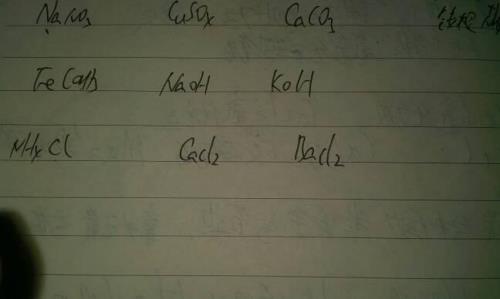 NaNO3 CuSO4 CaCO3
Fe(OH)3 NaOH KOH
NH4Cl CaCl2 BaCl2